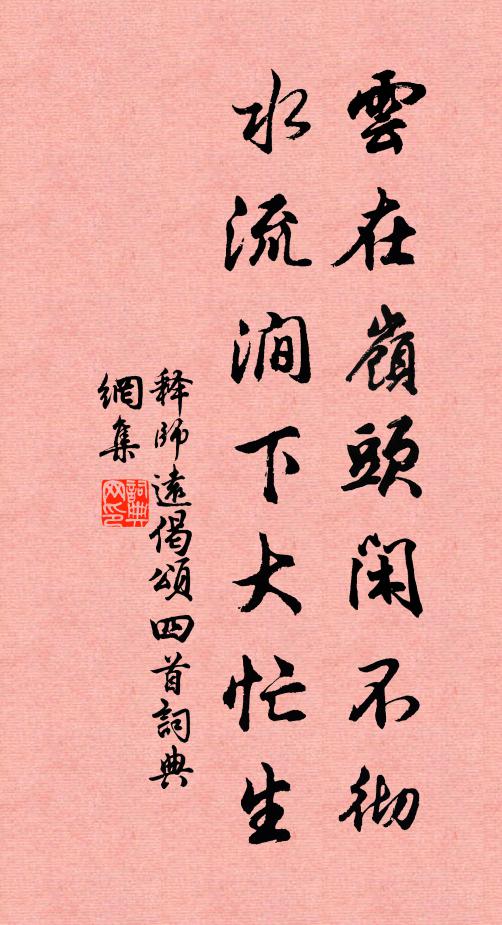 雲在嶺頭閑不彻
水流澗下大忙生
释師遠偈頌四首詞典
網集
詞典
网印